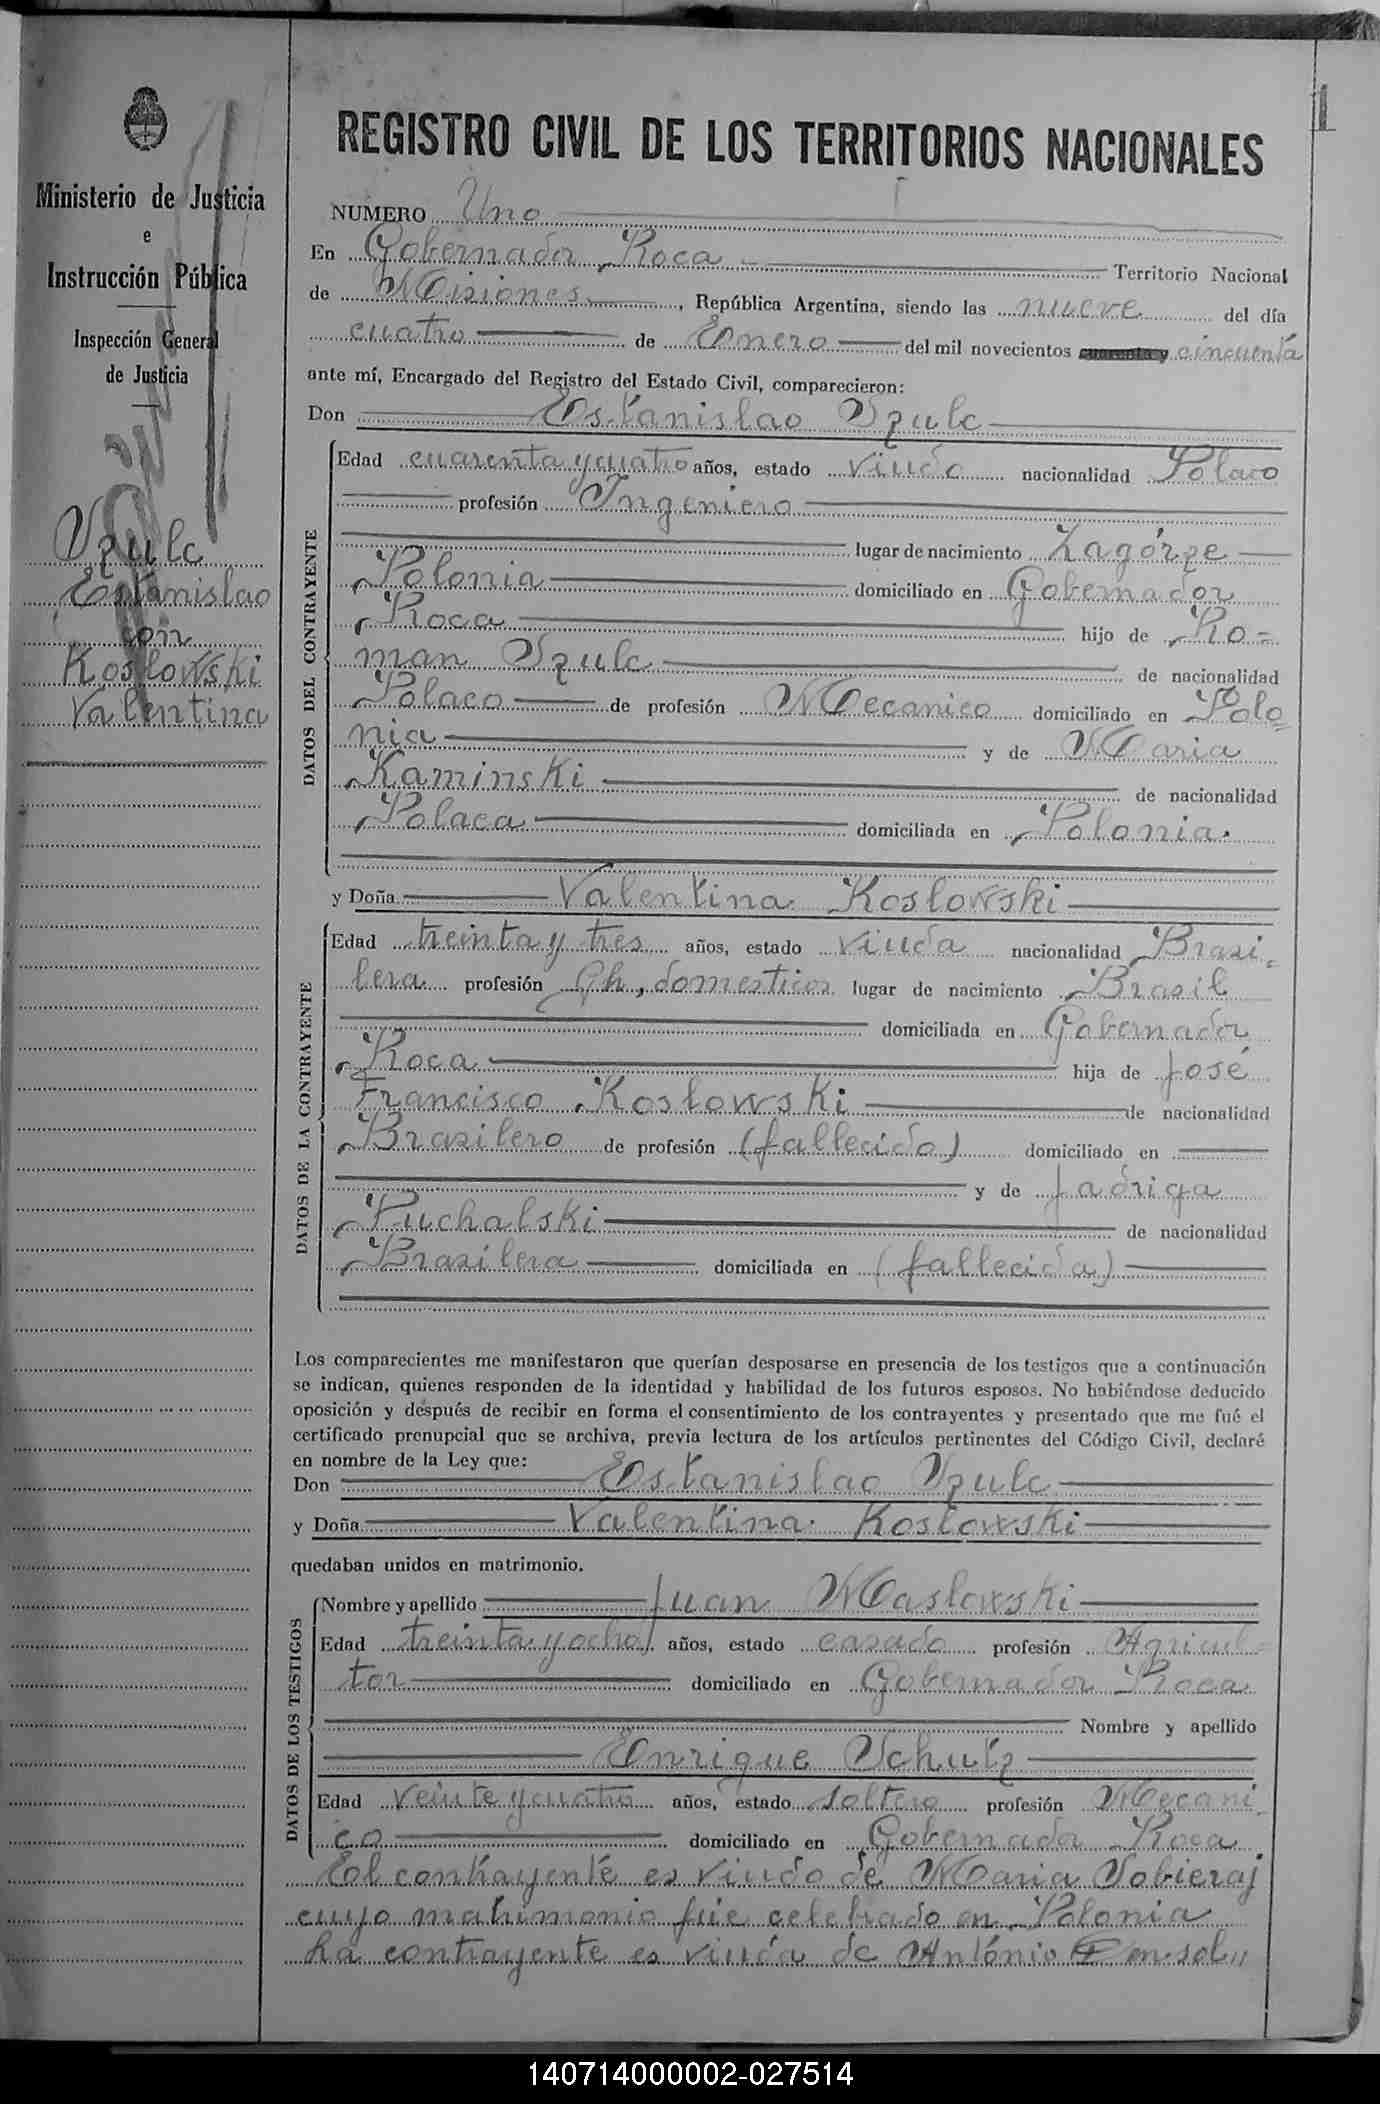 1
Ministerio de Justicia
e
Instrucción Pública
Inspección General
de Justicia
Szulc
Estanislao
con
Koslowski
Valentina
REGISTRO CIVIL DE LOS TERRITORIOS NACIONALES
NUMERO Uno
En Gobernador Roca Territorio Nacional
de Misiones, República Argentina, siendo las nueve del día
cuatro de Enero del mil novecientos cuarenta y cincuenta
ante mí, Encargado del Registro del Estado Civil, comparecieron:
Don Estanislao Szulc
DATOS DEL CONTRAYENTE
Edad cuarenta y cuatro años, estado viudo nacionalidad Polaco
profesión Ingeniero
lugar de nacimiento Zagórze
Polonia domiciliado en Gobernador
Roca hijo de Ro-
man Szulc de nacionalidad
Polaco de profesión Mecanico domiciliado en Polo-
nia y de Maria
Kaminski de nacionalidad
Polaca domiciliada en Polonia.
y Doña Valentina Koslowski
DATOS DE LA CONTRAYENTE
Edad treinta y tres años, estado viuda nacionalidad Brasi-
lera profesión Qh, domesticos lugar de nacimiento Brasil
domiciliada en Gobernador
Roca hija de José
Francisco Koslowski de nacionalidad
Brasilero de profesión (fallecido) domiciliado en
y de Jadriga
Puchalski de nacionalidad
Brasilera domiciliada en (fallecida)
Los comparecientes me manifestaron que querían desposarse en presencia de los testigos que a continuación
se indican, quienes responden de la identidad y habilidad de los futuros esposos. No habiéndose deducido
oposición y después de recibir en forma el consentimiento de los contrayentes y presentado que me fué el
certificado prenupcial que se archiva, previa lectura de los artículos pertinentes del Código Civil, declaré
en nombre de la Ley que:
Don Estanislao Szulc
y Doña Valentina Koslowski
quedaban unidos en matrimonio.
DATOS DE LOS TESTIGOS
Nombre y apellido Juan Maslowski
Edad treinta y ocho años, estado casado profesión Agricul-
tor domiciliado en Gobernador Roca
Nombre y apellido
Enrique Schulz
Edad veinte y cuatro años, estado soltero profesión Mecani-
co domiciliado en Gobernador Roca
El contrayente es viudo de Maria Sobieraj
cuyo matrimonio fue celebrado en Polonia
La contrayente es viuda de António
140714000002-027514